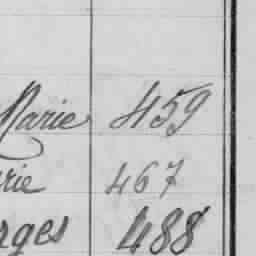 Marie 459
rie 467
rges 488